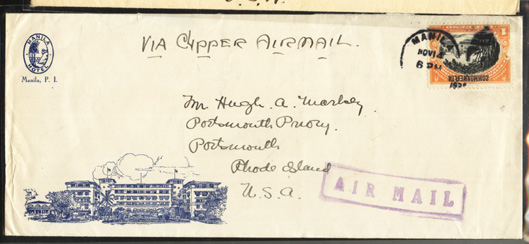 U.S.A.
MANILA
HOTEL
Manila, P. I.
VIA CLIPPER AIRMAIL.
MANILA
NOV 14
6 PM
COMMONWEALTH
Mr. Hugh A.
Portsmouth Priory.
Portsmouth
Rhode Island
U.S.A.
AIR MAIL